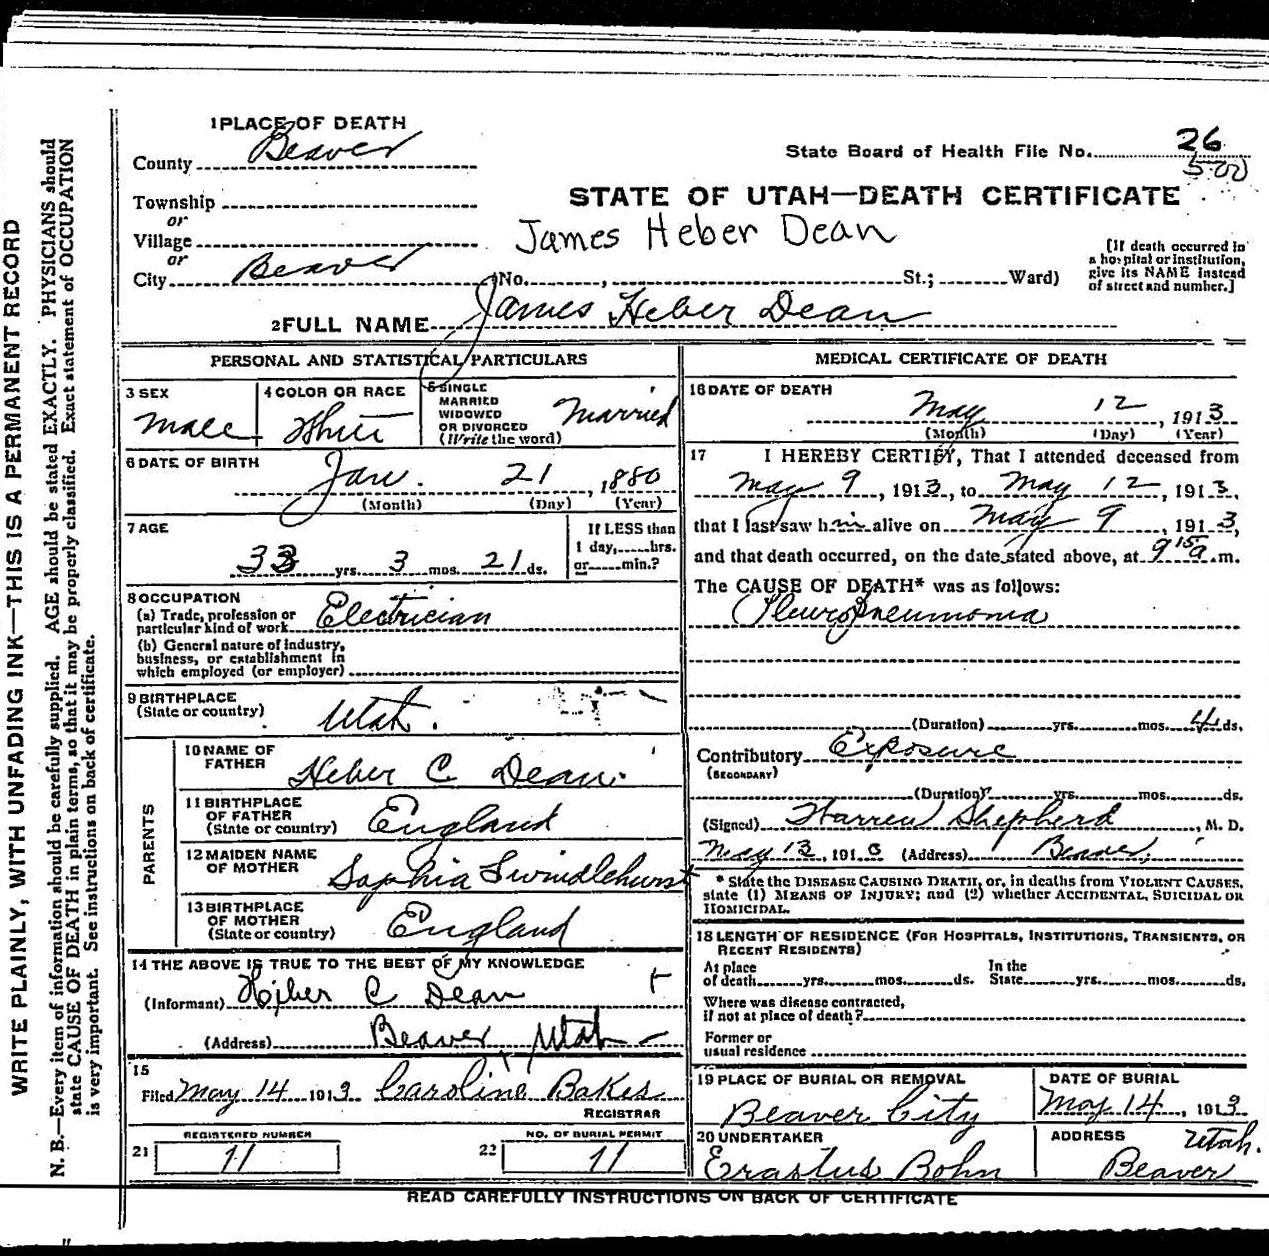 WRITE PLAINLY, WITH UNFADING INK—THIS IS A PERMANENT RECORD
N. B.—Every item of information should be carefully supplied. AGE should be stated EXACTLY. PHYSICIANS should
state CAUSE OF DEATH in plain terms, so that it may be properly classified. Exact statement of OCCUPATION
is very important. See instructions on back of certificate.
1 PLACE OF DEATH
County Beaver
State Board of Health File No. 26
500
Township
or
Village
or
City Beaver
STATE OF UTAH—DEATH CERTIFICATE
James Heber Dean
(No. , St.; Ward)
[If death occurred in
a hospital or institution,
give its NAME instead
of street and number.]
2 FULL NAME James Heber Dean
PERSONAL AND STATISTICAL PARTICULARS
3 SEX
Male
4 COLOR OR RACE
White
5 SINGLE
MARRIED
WIDOWED
OR DIVORCED
(Write the word)
Married
6 DATE OF BIRTH
Jan. 21, 1880
(Month) (Day) (Year)
7 AGE
33 yrs. 3 mos. 21 ds.
If LESS than
1 day, hrs.
or min.?
8 OCCUPATION
(a) Trade, profession or
particular kind of work Electrician
(b) General nature of industry,
business, or establishment in
which employed (or employer)
9 BIRTHPLACE
(State or country) Utah.
PARENTS
10 NAME OF
FATHER Heber C Dean.
11 BIRTHPLACE
OF FATHER
(State or country) England
12 MAIDEN NAME
OF MOTHER Sophia Swindlehurst
13 BIRTHPLACE
OF MOTHER
(State or country) England
14 THE ABOVE IS TRUE TO THE BEST OF MY KNOWLEDGE
(Informant) Heber C Dean
(Address) Beaver Utah
15
Filed May 14 1913 Caroline Bakes
REGISTRAR
REGISTERED NUMBER
21 11
NO. OF BURIAL PERMIT
22 11
MEDICAL CERTIFICATE OF DEATH
16 DATE OF DEATH
May 12, 1913
(Month) (Day) (Year)
17 I HEREBY CERTIFY, That I attended deceased from
May 9, 1913, to May 12, 1913,
that I last saw him alive on May 9, 1913,
and that death occurred, on the date stated above, at 9 15 a.m.
The CAUSE OF DEATH* was as follows:
Pleuro Pneumonia
(Duration) yrs. mos. 4 ds.
Contributory Exposure
(SECONDARY)
(Duration) yrs. mos. ds.
(Signed) Warren Shepherd, M. D.
May 13, 191 (Address) Beaver
* State the DISEASE CAUSING DEATH, or, in deaths from VIOLENT CAUSES,
state (1) MEANS OF INJURY; and (2) whether ACCIDENTAL, SUICIDAL OR
HOMICIDAL.
18 LENGTH OF RESIDENCE (FOR HOSPITALS, INSTITUTIONS, TRANSIENTS, OR
RECENT RESIDENTS)
At place
of death yrs. mos. ds.
In the
State yrs. mos. ds.
Where was disease contracted,
if not at place of death?
Former or
usual residence
19 PLACE OF BURIAL OR REMOVAL
Beaver City
DATE OF BURIAL
May 14, 1913
20 UNDERTAKER
Erastus Bohn
ADDRESS Utah.
Beaver
READ CAREFULLY INSTRUCTIONS ON BACK OF CERTIFICATE